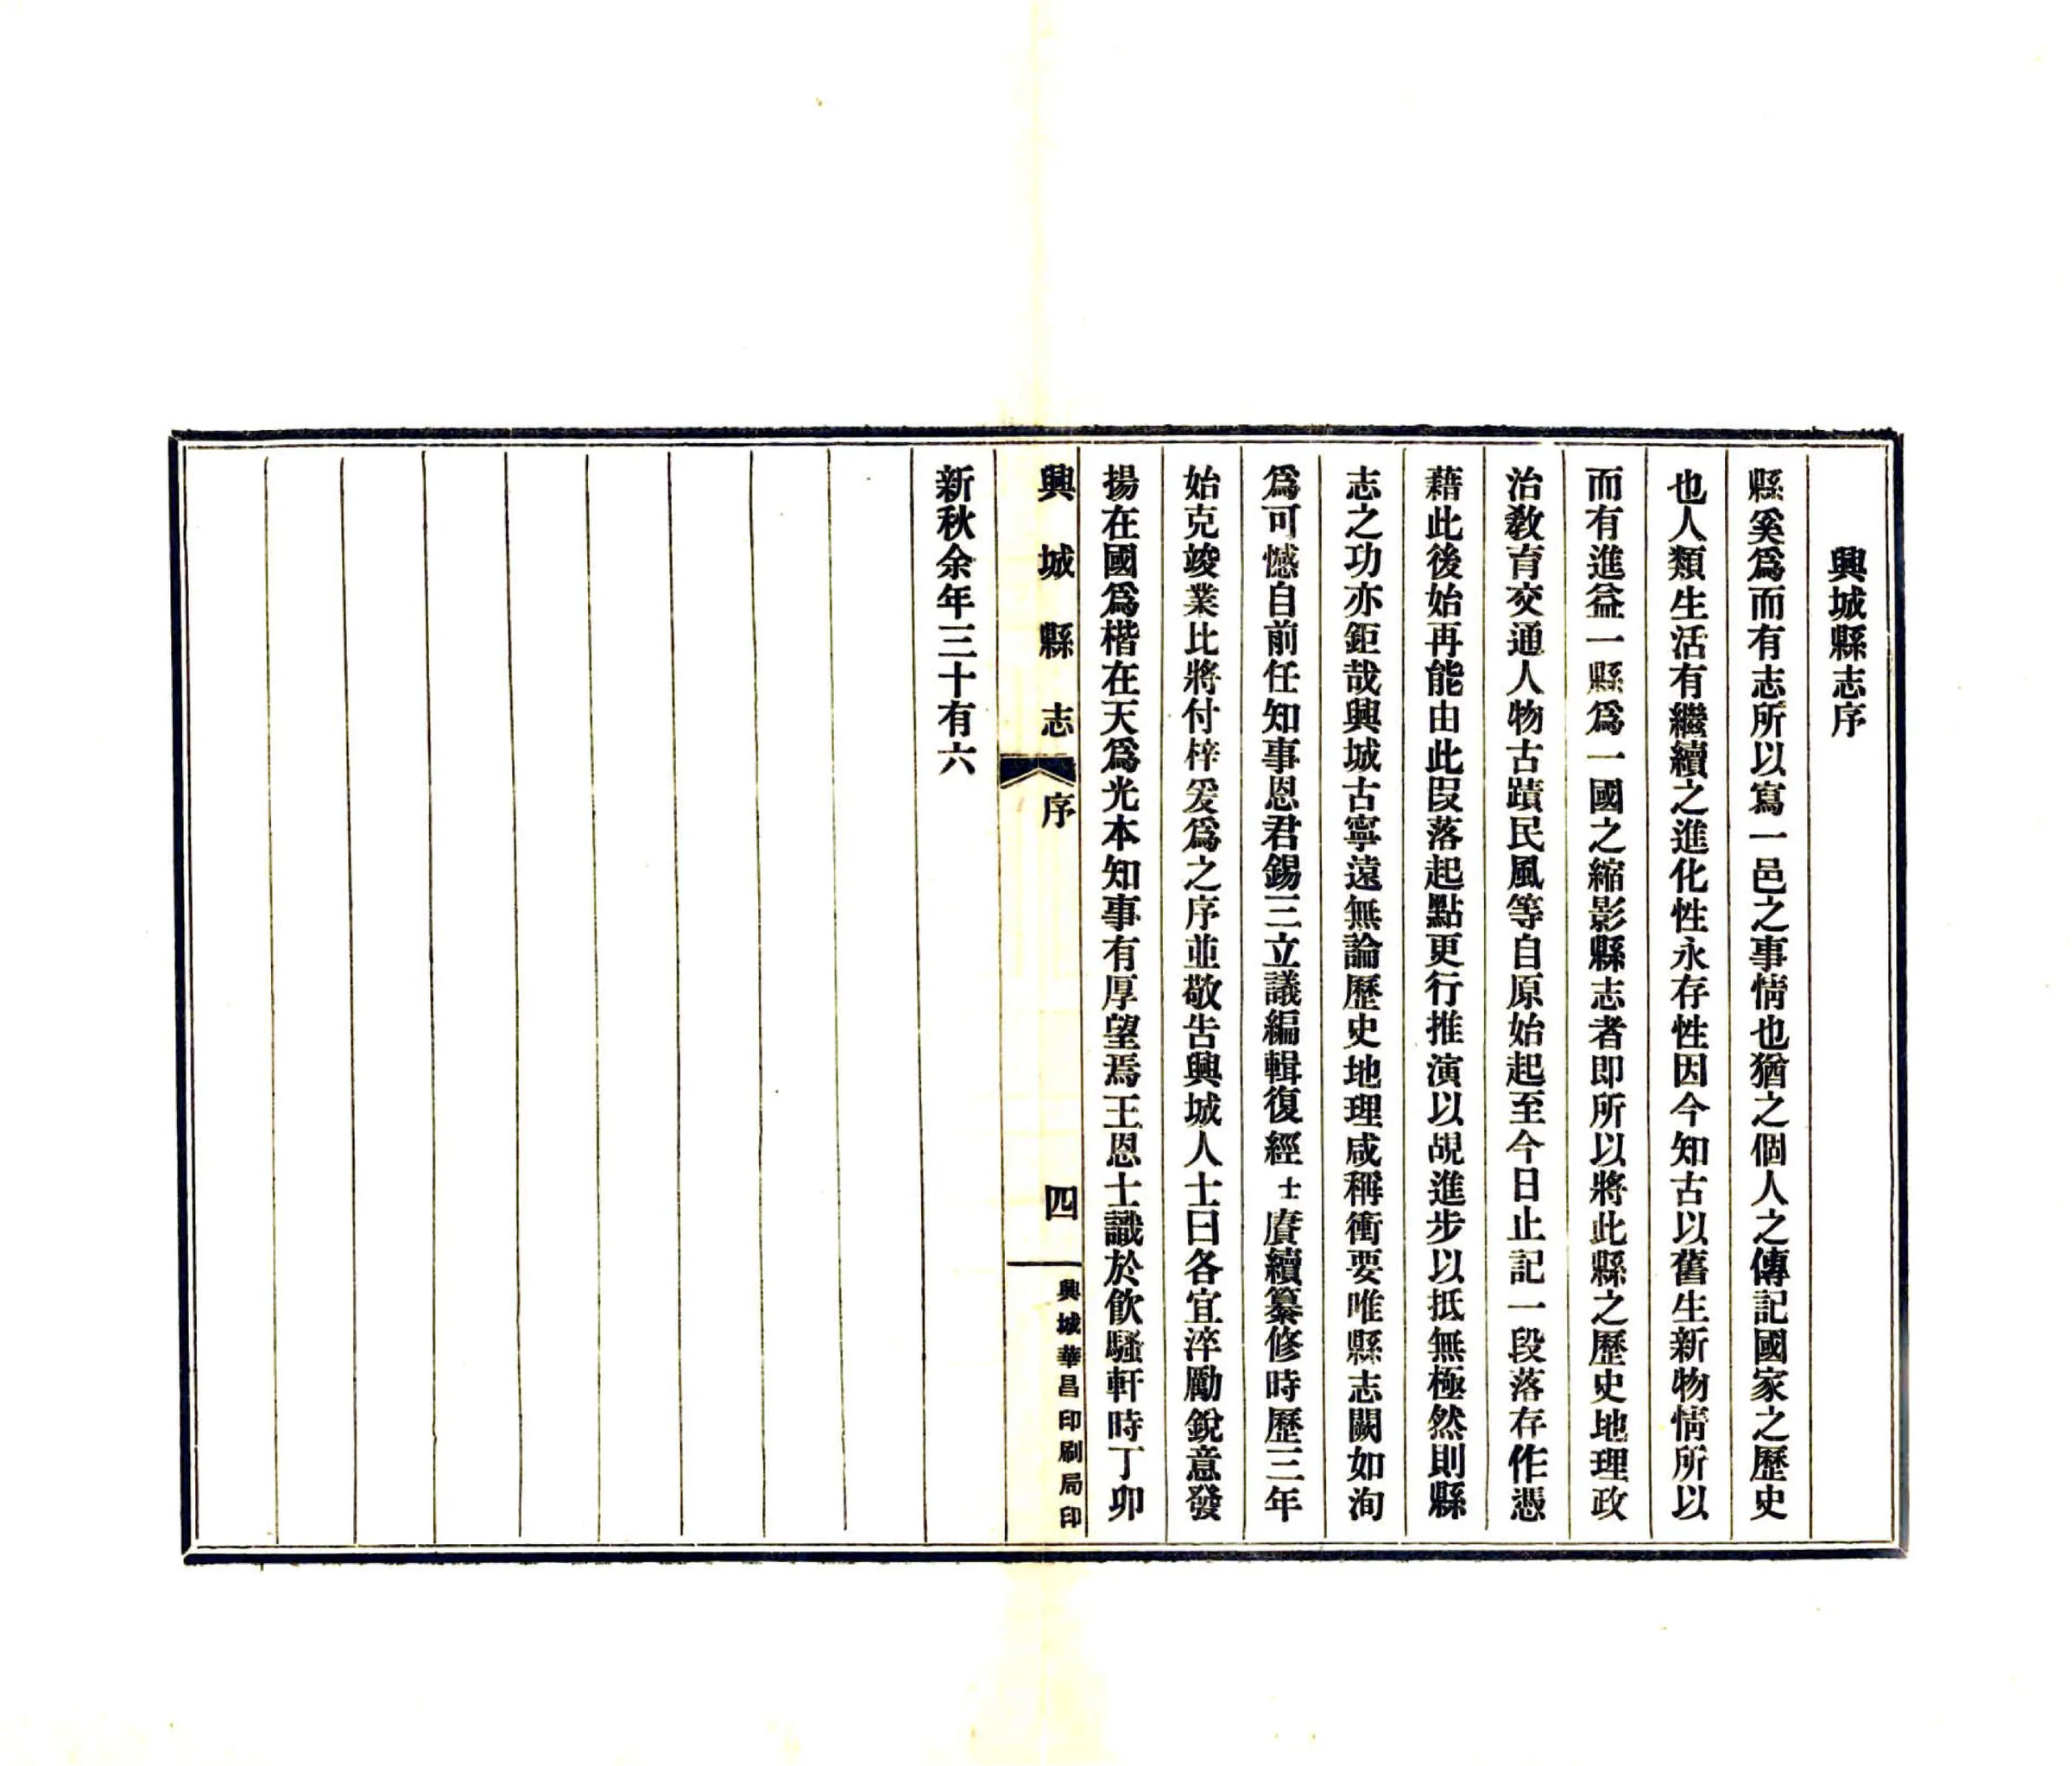 興城縣志序
縣奚爲而有志所以寫一邑之事情也猶之個人之傳記國家之歷史
也人類生活有繼續之進化性永存性因今知古以舊生新物情所以
而有進益一縣爲一國之縮影縣志者即所以將此縣之歷史地理政
治敎育交通人物古蹟民風等自原始起至今日止記一段落存作憑
藉此後始再能由此段落起點更行推演以覘進步以抵無極然則縣
志之功亦鉅哉興城古寧遠無論歷史地理咸稱衝要唯縣志闕如洵
爲可憾自前任知事恩君錫三立議編輯復經士賡續纂修時歷三年
始克竣業比將付梓爰爲之序並敬告興城人士曰各宜淬勵銳意發
揚在國爲楷在天爲光本知事有厚望焉王恩士識於飮騷軒時丁卯
興城縣志 序 四 興城華昌印刷局印
新秋余年三十有六